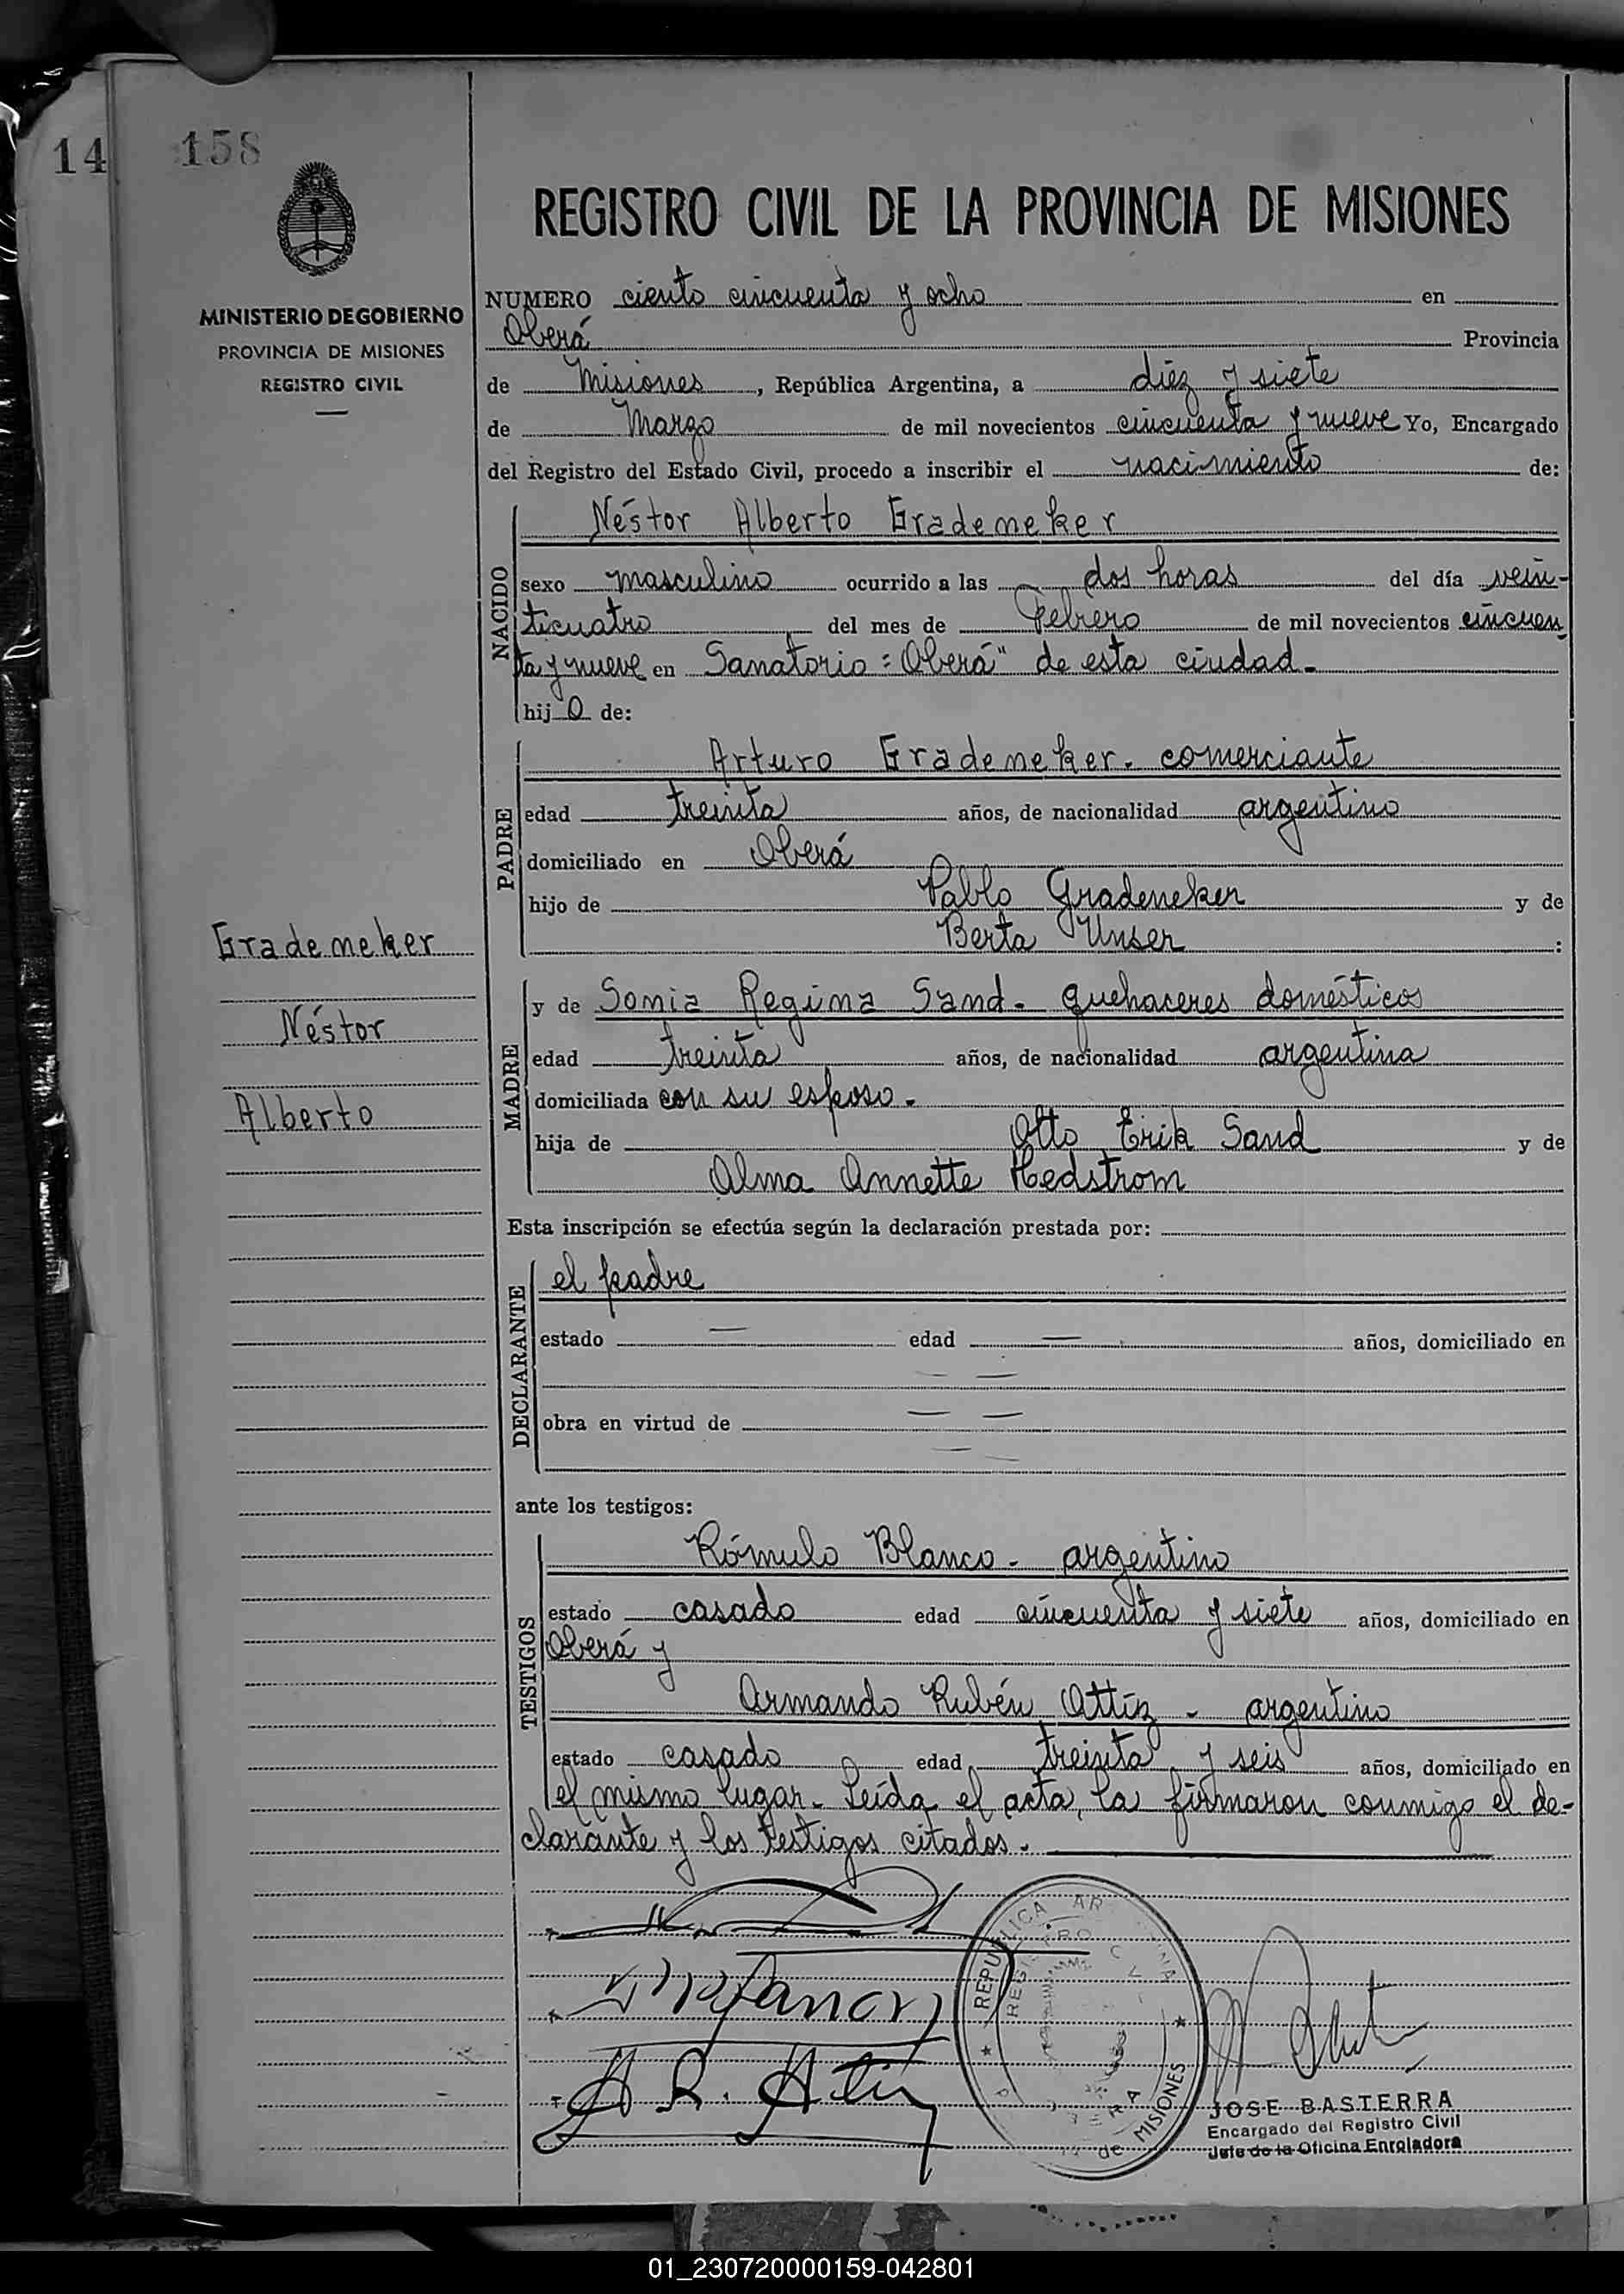 14
158
MINISTERIO DE GOBIERNO
PROVINCIA DE MISIONES
REGISTRO CIVIL
REGISTRO CIVIL DE LA PROVINCIA DE MISIONES
NUMERO ciento cincuenta y ocho en
Oberá Provincia
de Misiones, República Argentina, a diéz y siete
de Marzo de mil novecientos cincuenta y nueve Yo, Encargado
del Registro del Estado Civil, procedo a inscribir el nacimiento de:
NACIDO
Néstor Alberto Grademeker
sexo masculino ocurrido a las dos horas del día vein-
ticuatro del mes de Febrero de mil novecientos cincuen
ta y nueve en Sanatorio "Oberá" de esta ciudad.
hijo de:
PADRE
Arturo Grademeker. comerciante
edad treinta años, de nacionalidad argentino
domiciliado en Oberá
hijo de Pablo Gradeneker y de
Berta Unser :
MADRE
y de Sonia Regina Sand. quehaceres domésticos
edad treinta años, de nacionalidad argentina
domiciliada con su esposo.
hija de Otto Erik Sand y de
Alma Annette Hedstrom
Esta inscripción se efectúa según la declaración prestada por:
DECLARANTE
el padre
estado — edad — años, domiciliado en
— —
obra en virtud de — —
— —
ante los testigos:
TESTIGOS
Rómulo Blanco - argentino
estado casado edad cincuenta y siete años, domiciliado en
Oberá y
Armando Rubén Attiz - argentino
estado casado edad treinta y seis años, domiciliado en
el mismo lugar. Leída el acta, la firmaron conmigo el de-
clarante y los testigos citados.
Grademeker
Néstor
Alberto
A. R.
REPUBLICA AR
REGISTRO C
de MISIONES
JOSE BASTERRA
Encargado del Registro Civil
Jefe de la Oficina Enroladora
01_230720000159-042801